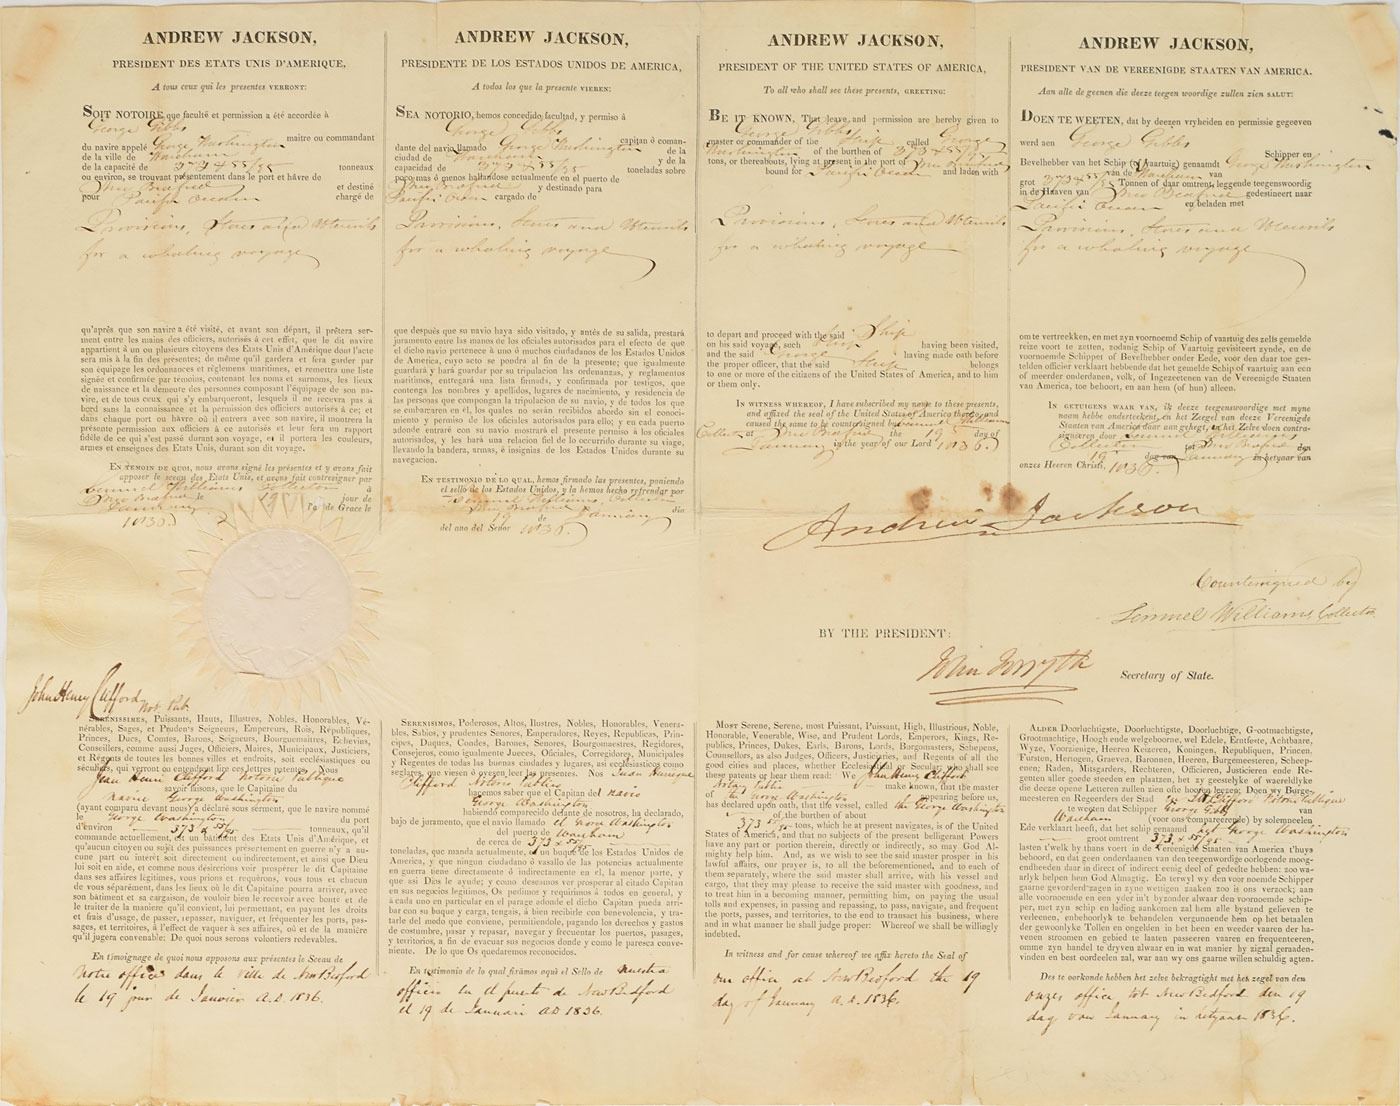 ANDREW JACKSON,
PRESIDENT DES ETATS UNIS D'AMERIQUE,
A tous ceux qui les presentes VERRONT:
SOIT NOTOIRE que faculté et permission a été accordée à
George Gibbs maitre ou commandant
du navire appelé George Washington
de la ville de Wareham
de la capacité de 373 & 55/95 tonneaux
ou environ, se trouvant présentement dans le port et hâvre de
New Bedford et destiné
pour Pacific Ocean chargé de
Provisions, Stores and Utensils
for a whaling voyage
qu'après que son navire a été visité, et avant son départ, il prêtera ser-
ment entre les mains des officiers, autorisés à cet effet, que le dit navire
appartient à un ou plusieurs citoyens des Etats Unis d'Amérique dont l'acte
sera mis à la fin des présentes; de même qu'il gardera et fera garder par
son équipage les ordonnances et règlemens maritimes, et remettra une liste
signée et confirmée par témoins, contenant les noms et surnoms, les lieux
de naissance et la demeure des personnes composant l'équipage de son na-
vire, et de tous ceux qui s'y embarqueront, lesquels il ne recevra pas à
bord sans la connaissance et la permission des officiers autorisés à ce; et
dans chaque port ou hâvre où il entrera avec son navire, il montrera la
présente permission aux officiers à ce autorisés et leur fera un rapport
fidèle de ce qui s'est passé durant son voyage, et il portera les couleurs,
armes et enseignes des Etats Unis, durant son dit voyage.
EN TEMOIN DE QUOI, nous avons signé les présentes et y avons fait
apposer le sceau des Etats Unis, et avons fait contresigner par
Lemuel Williams Collector à
New Bedford le 19 jour de
January l'an de Grace le
1836.
ANDREW JACKSON,
PRESIDENTE DE LOS ESTADOS UNIDOS DE AMERICA,
A todos los que la presente VIEREN:
SEA NOTORIO, hemos concedido facultad, y permiso á
George Gibbs capitan ó coman-
dante del navio llamado George Washington de la
ciudad de Wareham y de la
capacidad de 373 & 55/95 toneladas sobre
poco mas ó menos hallandose actualmente en el puerto de
New Bedford y destinado para
Pacific Ocean cargado de
Provisions, Stores and Utensils
for a whaling voyage
que después que su navio haya sido visitado, y antés de su salida, prestará
juramento entre las manos de los oficiales autorisados para el efecto de que
el dicho navio pertenece á uno ó muchos ciudadanos de los Estados Unidos
de America, cuyo acto se pondrá al fin de la presente; que igualmente
guardará y hará guardar por su tripulacion las ordenanzas, y reglamentos
maritimos, entregará una lista firmada, y confirmada por testigos, que
contenga los nombres y apellidos, lugares de nacimiento, y residencia de
las personas que componen la tripulacion de su navio, y de todos los que
se embarcaren en él, los quales no serán recibidos abordo sin el conoci-
miento y permiso de los oficiales autorisados para ello; y en cada puerto
donde entraré con su navio mostrará el presente permiso á los oficiales
autorisados, y les hará una relacion fiel de lo ocurrido durante su viage,
llevando la bandera, armas, é insignias de los Estados Unidos durante su
navegacion.
EN TESTIMONIO DE LO QUAL, hemos firmado las presentes, poniendo
el selló de los Estados Unidos, y la hemos hecho refrendar por
Lemuel Williams, Collector
New Bedford dia
19 de January
del ano del Señor 1836
ANDREW JACKSON,
PRESIDENT OF THE UNITED STATES OF AMERICA,
To all who shall see these presents, GREETING:
BE IT KNOWN, That leave and permission are hereby given to
George Gibbs
master or commander of the Ship called George
Washington of the burthen of 373 & 55/95
tons, or thereabouts, lying at present in the port of New Bedford
bound for Pacific Ocean and laden with
Provisions, Stores and Utensils
for a whaling voyage
to depart and proceed with the said Ship
on his said voyage, such Ship having been visited,
and the said George having made oath before
the proper officer, that the said Ship belongs
to one or more of the citizens of the United States of America, and to him
or them only.
IN WITNESS WHEREOF, I have subscribed my name to these presents,
and affixed the seal of the United States of America thereto, and
caused the same to be countersigned by Lemuel Williams
Collector at New Bedford the 19 day of
January in the year of our Lord 1836.
ANDREW JACKSON,
PRESIDENT VAN DE VEREENIGDE STAATEN VAN AMERICA.
Aan alle de geenen die deeze teegen woordige zullen zien SALUT:
DOEN TE WEETEN, dat by deezen vryheiden en permissie gegeeven
werd aen George Gibbs Schipper en
Bevelhebber van het Schip (of Vaartuig) genaamdt George Washington
van de Wareham van
grot 373 & 55/95 Tonnen of daar omtrent, leggende teegenswoordig
in de Haaven van New Bedford gedestineert naar
Pacific Ocean en beladen met
Provisions, Stores and Utensils
for a whaling voyage
om te vertrekken, en met zyn voornoemd Schip of vaartuig des zelfs gemelde
reize voort te zetten, zodanig Schip of Vaartuig gevisiteert zynde, en de
voornoemde Schipper of Bevelhebber onder Eede, voor den daar toe ges-
telden officier verklaart hebbende dat het gemelde Schip of vaartuig aan een
of meerder onderdanen, volk, of Ingezeetenen van de Vereenigde Staaten
van America, toe behoort, en aan hem (of hun) alleen.
IN GETUIGENS WAAR VAN, ik deeze teegenswoordige met myne
naam hebbe onderteekent, en het Zeegel van deeze Vereenigde
Staaten van America daar aan gehegt, en het Zelve doen contra-
signeeren door Lemuel Williams
Collector tot New Bedford den
19 dag van January in het yaar van
onzes Heeren Christi, 1836.
Andrew Jackson
Countersigned by
Lemuel Williams, Collector
BY THE PRESIDENT:
John Forsyth
Secretary of State.
John Henry Clifford Not. Pub.
SERENISSIMES, Puissants, Hauts, Illustres, Nobles, Honorables, Vé-
nérables, Sages, et Prudens Seigneurs, Empereurs, Rois, Républiques,
Princes, Ducs, Comtes, Barons, Seigneurs, Bourguemaitres, Echevins,
Conseillers, comme aussi Juges, Officiers, Maires, Municipaux, Justiciers,
et Régents de toutes les bonnes villes et endroits, soit ecclésiastiques ou
séculiers, qui verront ou entendront lire ces lettres patentes. Nous
Jean Henri Clifford Notoire Publique
savoir faisons, que le Capitaine du
navire George Washington
(ayant comparu devant nous) a déclaré sous serment, que le navire nommé
le George Washington du port
d'environ 373 & 55/95 tonneaux, qu'il
commande actuellement, est un bâtiment des Etats Unis d'Amérique, et
qu'aucun citoyen ou sujet des puissances présentement en guerre n'y a au-
cune part ou intérêt soit directement ou indirectement, et ainsi que Dieu
lui soit en aide, et comme nous désirerions voir prospérer le dit Capitaine
dans ses affaires légitimes, vous prions et requérons, vous tous et chacun
de vous séparément, dans les lieux où le dit Capitaine pourra arriver, avec
son bâtiment et sa cargaison, de vouloir bien le recevoir avec bonté et de
le traiter de la manière qu'il convient, lui permettant, en payant les droits
et frais d'usage, de passer, repasser, naviguer, et fréquenter les ports, pas-
sages, et territoires, à l'effet de vaquer à ses affaires, où et de la manière
qu'il jugera convenable: De quoi nous serons volontiers redevables.
En témoignage de quoi nous apposons aux présentes le Sceau de
notre office dans le Ville de New Bedford
le 19 jour de Janvier A.D. 1836.
SERENISIMOS, Poderosos, Altos, Ilustres, Nobles, Honorables, Venera-
bles, Sabios, y prudentes Senores, Emperadores, Reyes, Republicas, Prin-
cipes, Duques, Condes, Barones, Senores, Bourgomaestres, Regidores,
Consejeros, como igualmente Jueces, Oficiales, Corregidores, Municipales
y Regentes de todas las buenas ciudades y lugares, asi ecclesiasticos como
seglares, que viesen ó oyesen leer las presentes. Nos Juan Henrique
Clifford Notorio Publico
hacemos saber que el Capitan del navio
George Washington
habiendo comparecido delante de nosotros, ha declarado,
bajo de juramento, que el navio llamado el George Washington
del puerto de Wareham
de cerca de 373 & 55/95
toneladas, que manda actualmente, es un buque de los Estados Unidos de
America, y que ningun ciudadano ó vasallo de las potencias actualmente
en guerra tiene directamente ó indirectamente en él, la menor parte, y
que asi Dios le ayude; y como deseamos ver prosperar al citado Capitan
en sus negocios legitimos, Os pedimos y requirimos á todos en general, y
á cada uno en particular en el parage adonde el dicho Capitan pueda arri-
bar con su buque y carga, tengais, á bien recibirle con benevolencia, y tra-
tarle del modo que conviene, permitiendole, pagando los derechos y gastos
de costumbre, pasar y repasar, navegar y frecuentar los puertos, pasages,
y territorios, a fin de evacuar sus negocios donde y como le paresca conve-
niente. De lo que Os quedaremos reconocidos.
En testimonio de lo qual firámos aqui el Sello de nuestra
officio en el puerto de New Bedford
el 19 de Januari AD 1836.
MOST Serene, Serene, most Puissant, Puissant, High, Illustrious, Noble,
Honorable, Venerable, Wise, and Prudent Lords, Emperors, Kings, Re-
publics, Princes, Dukes, Earls, Barons, Lords, Borgomasters, Schepens,
Counsellors, as also Judges, Officers, Justiciaries, and Regents of all the
good cities and places, whether Ecclesiastical or Secular, who shall see
these patents or hear them read: We John Henry Clifford
Notary Public make known, that the master
of the George Washington appearing before us,
has declared upon oath, that the vessel, called the George Washington
of the burthen of about
373 & 55/95 tons, which he at present navigates, is of the United
States of America, and that no subjects of the present belligerant Powers
have any part or portion therein, directly or indirectly, so may God Al-
mighty help him. And, as we wish to see the said master prosper in his
lawful affairs, our prayer is, to all the beforementioned, and to each of
them separately, where the said master shall arrive, with his vessel and
cargo, that they may please to receive the said master with goodness, and
to treat him in a becoming manner, permitting him, on paying the usual
tolls and expenses, in passing and repassing, to pass, navigate, and frequent
the ports, passes, and territories, to the end to transact his business, where
and in what manner he shall judge proper: Whereof we shall be willingly
indebted.
In witness and for cause whereof we affix hereto the Seal of
our office at New Bedford the 19
day of January A.D. 1836.
ALDER Doorluchtigste, Doorluchtigste, Doorluchtige, Grootmachtigste,
Grootmachtige, Hoogh ende welgeboorne, wel Edele, Erntfeste, Achtbaare,
Wyze, Voorzienige, Heeren Keizeren, Koningen, Republiquen, Princen,
Fursten, Hertogen, Graeven, Baronnen, Heeren, Burgemeesteren, Scheep-
enen; Raden, Mitsgarders, Rechteren, Officieren, Justicieren ende Re-
genten aller goede steeden en plaatzen, het zy geestelyke of waereldlyke
die deeze opene Letteren zullen zien ofte hooren leezen: Doen wy Burge-
meesteren en Regeerders der Stad
te weeten dat Schipper George Gibbs van
Wareham (voor ons compareerde) by solemneelen
Ede verklaart heeft, dat het schip genaamd George Washington
groot omtrent 373 & 55/95
lasten t'welk by thans voert in de Vereenigde Staaten van America t'huys
behoort, en dat geen onderdaanen van den teegenwoordige oorlogende moog-
endheden daar in direct of indirect eenig deel of gedeelte hebben: zoo wa-
arlyk helpen hem God Almagtig. En terwyl wy den voornoemde Schipper
gaarne gevorderd zagen in zyne wettigen zaaken zoo is ons verzoek, aan
alle voornoemde en een yder in't byzonder alwaar den voornoemde schip-
per, met zyn schip en lading aankomen zal hem alle bystand gelieven te
verleenen, enbehoorlyk te behandelen vergunneende hem op het betaalen
der gewoonlyke Tollen en ongelden in het heen en weeder vaaren der ha-
venen stroomen en gebied te laaten passeeren vaaren en frequenteeren,
omme zyn handel te dryven alwaar en in wat manier hy zigzal geraaden-
vinden en best oordeelen zal, war aan wy ons gaarne willen schuldig agten.
Des te oorkonde hebben het zelve bekragtight met het zegel van den
onzes office, tot New Bedford den 19
dag van January in het jaar 1836.